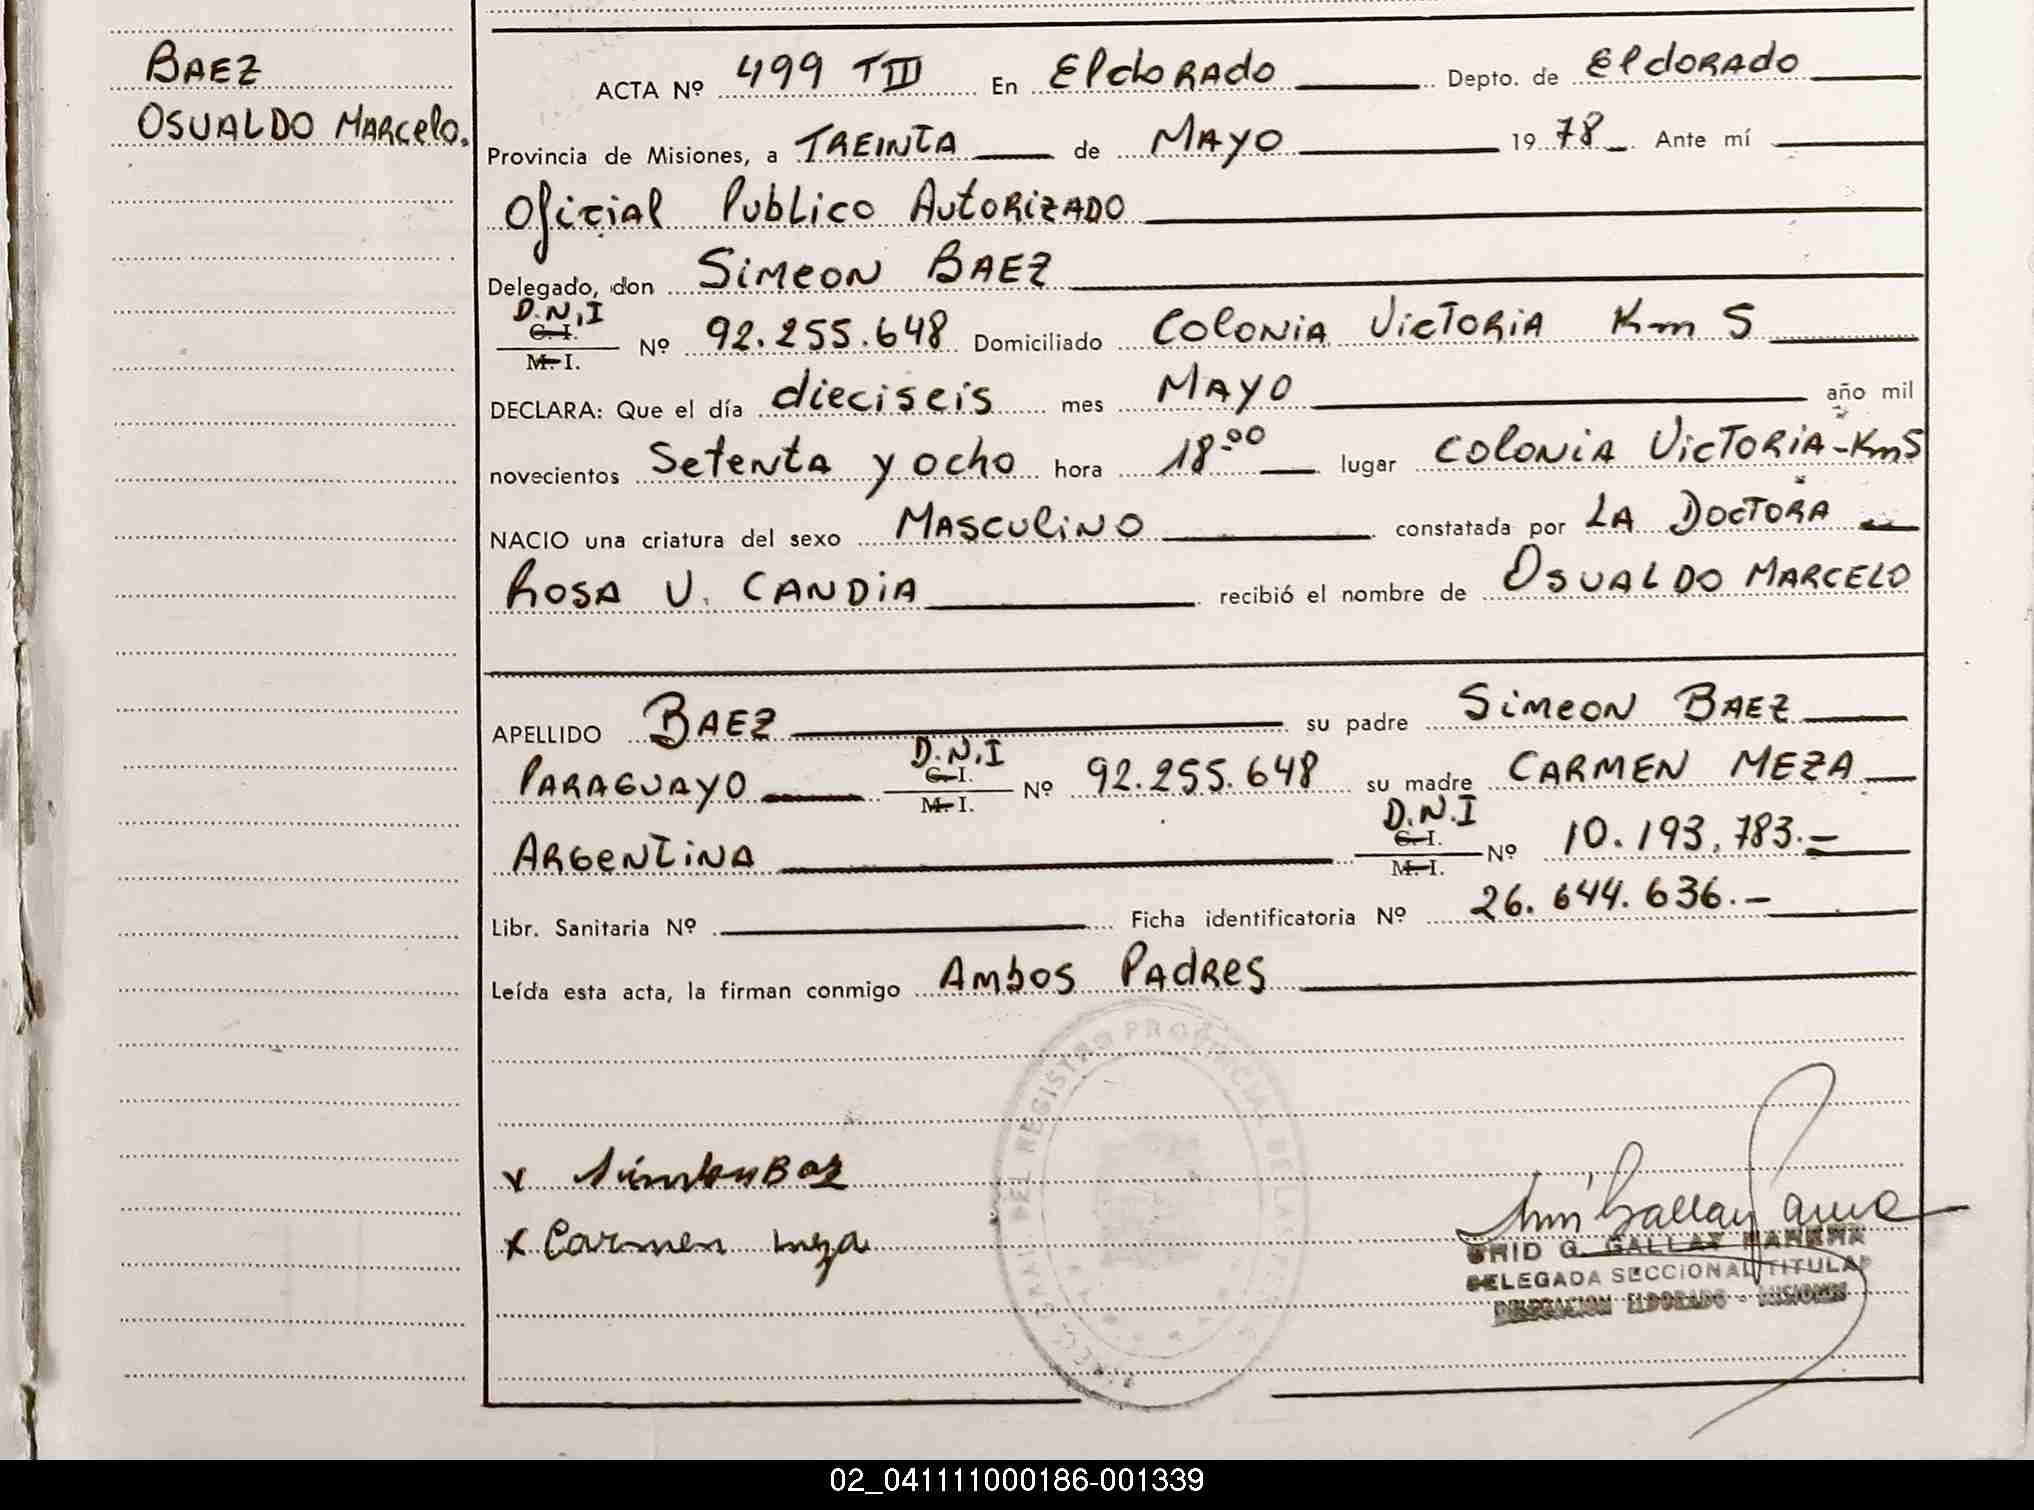 BAEZ
OSUALDO MARCELO.
ACTA Nº 499 TIII En ELDORADO Depto. de ELDORADO
Provincia de Misiones, a TREINTA de MAYO 1978 Ante mí
Oficial Publico Autorizado
Delegado, don Simeon BAEZ
D.N.I
C. I.
M. I. Nº 92.255.648 Domiciliado Colonia Victoria Km 5
DECLARA: Que el día dieciseis mes MAYO año mil
novecientos Setenta y ocho hora 18.00 lugar Colonia Victoria-Km5
NACIO una criatura del sexo Masculino constatada por LA DOCTORA
Rosa U. CANDIA recibió el nombre de OSUALDO MARCELO
APELLIDO BAEZ su padre Simeon BAEZ
PARAGUAYO D.N.I C. I. M. I. Nº 92.255.648 su madre CARMEN MEZA
ARGENTINA D.N.I C. I. M. I. Nº 10.193.783.-
Libr. Sanitaria Nº Ficha identificatoria Nº 26.644.636.-
Leída esta acta, la firman conmigo Ambos Padres
x Baz
x Carmen meza
G. GALLAY
DELEGADA SECCIONAL TITULAR
DELEGACION ELDORADO - MISIONES
GRAL. DEL REGISTRO PROVINCIAL DE LAS PERS
02_041111000186-001339